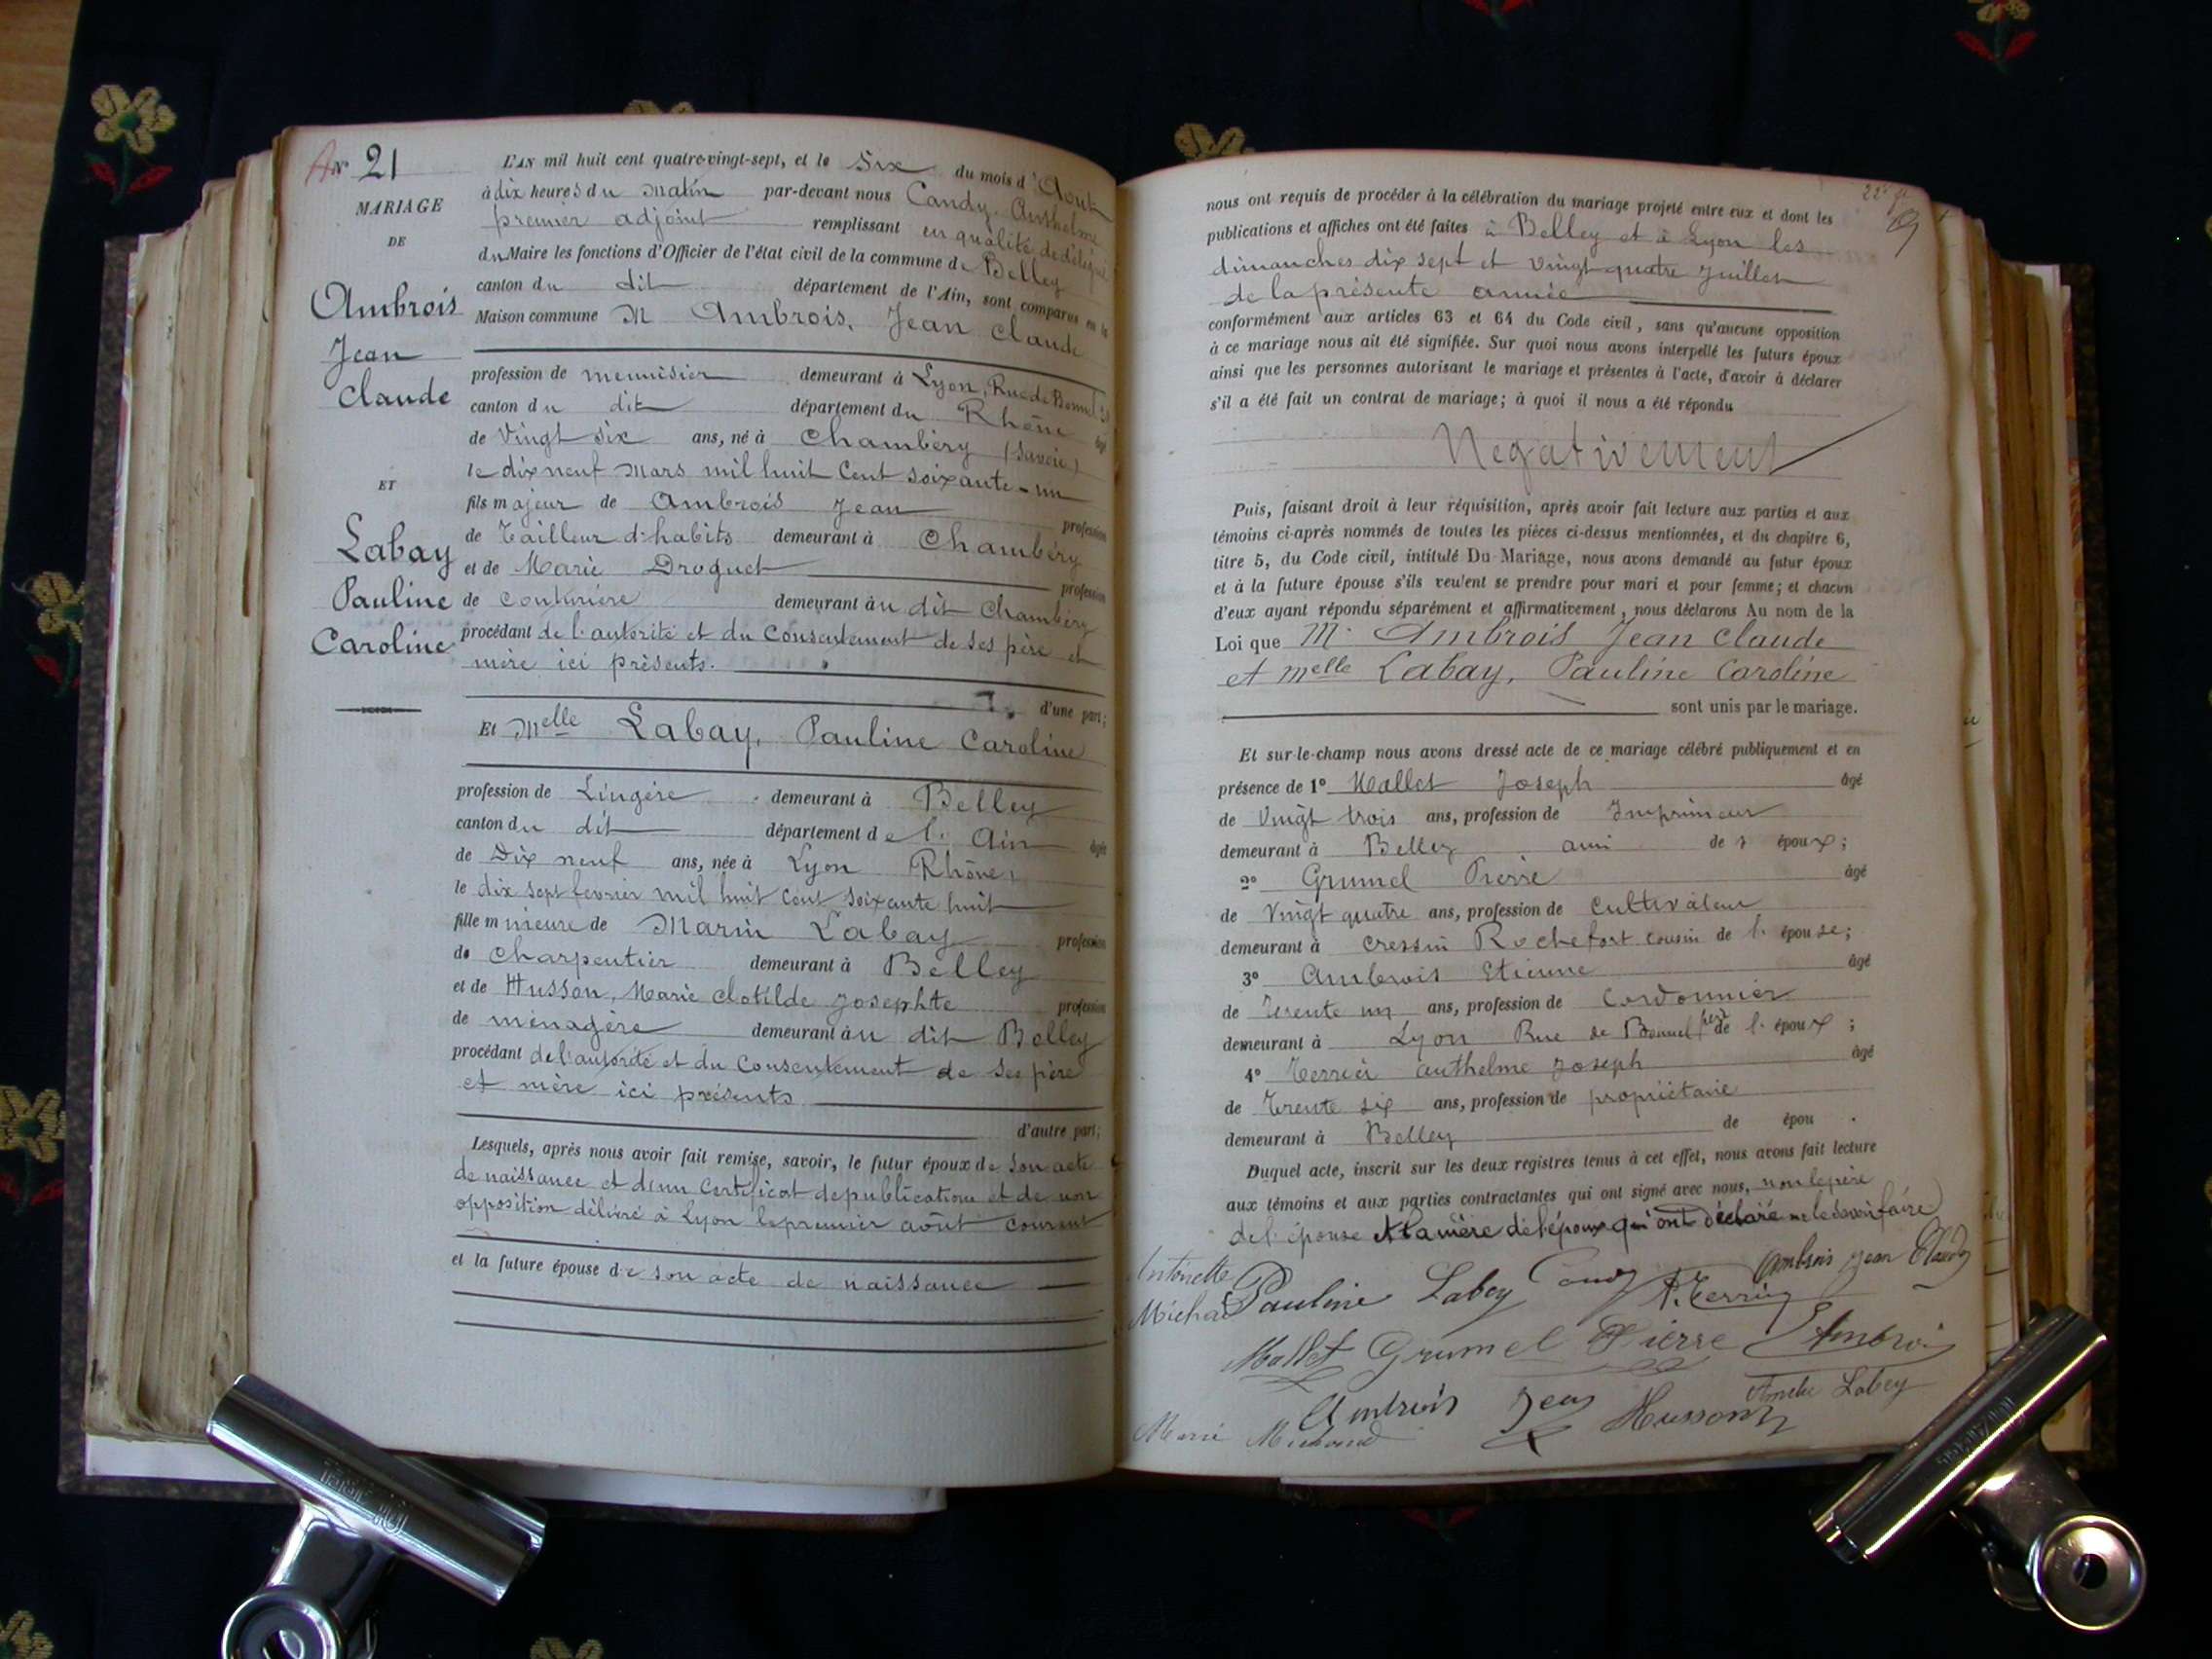 N° 21
MARIAGE
DE
Ambrois
Jean
Claude
ET
Labay
Pauline
Caroline
L'AN mil huit cent quatre-vingt-sept, et le Six du mois d'Août
à dix heures du matin par-devant nous Candy, Anthelme
premier adjoint remplissant en qualité de délégué
du Maire les fonctions d'Officier de l'état civil de la commune de Belley
canton du dit département de l'Ain, sont comparus en la
Maison commune M Ambrois, Jean Claude
profession de menuisier demeurant à Lyon, Rue de Bonnel
canton du dit département du Rhône âgé
de Vingt six ans, né à Chambéry (Savoie)
le dix neuf Mars mil huit Cent soixante-un
fils majeur de Ambrois Jean profession
de Tailleur d'habits demeurant à Chambéry
et de Marie Droguet profession
de Couturière demeurant àu dit Chambéry
procédant de l'autorité et du Consentement de ses père et
mère ici présents.
d'une part;
Et Melle Labay, Pauline Caroline
profession de Lingère demeurant à Belley
canton du dit département de l'Ain âgée
de Dix neuf ans, née à Lyon Rhône,
le dix sept fevrier mil huit cent soixante huit
fille mineure de Marin Labay profession
de Charpentier demeurant à Belley
et de Husson, Marie Clotilde Josephte profession
de ménagère demeurant àu dit Belley
procédant de l'autorité et du Consentement de ses père
et mère ici présents
d'autre part;
Lesquels, après nous avoir fait remise, savoir, le futur époux de Son acte
de naissance et d'un Certificat de publications et de non
opposition délivré à Lyon le premier août courant
et la future épouse de son acte de naissance
nous ont requis de procéder à la célébration du mariage projeté entre eux et dont les
publications et affiches ont été faites à Belley et à Lyon les
dimanches dix sept et vingt quatre Juillet
de la présente année
conformément aux articles 63 et 64 du Code civil, sans qu'aucune opposition
à ce mariage nous ait été signifiée. Sur quoi nous avons interpellé les futurs époux
ainsi que les personnes autorisant le mariage et présentes à l'acte, d'avoir à déclarer
s'il a été fait un contrat de mariage; à quoi il nous a été répondu
Negativement
Puis, faisant droit à leur réquisition, après avoir fait lecture aux parties et aux
témoins ci-après nommés de toutes les pièces ci-dessus mentionnées, et du chapitre 6,
titre 5, du Code civil, intitulé Du Mariage, nous avons demandé au futur époux
et à la future épouse s'ils veulent se prendre pour mari et pour femme; et chacun
d'eux ayant répondu séparément et affirmativement, nous déclarons Au nom de la
Loi que M. Ambrois Jean Claude
et Melle Labay, Pauline Caroline
sont unis par le mariage.
Et sur-le-champ nous avons dressé acte de ce mariage célébré publiquement et en
présence de 1° Mallet Joseph âgé
de Vingt trois ans, profession de Imprimeur
demeurant à Belley ami de s époux;
2° Grumel Pierre âgé
de Vingt quatre ans, profession de Cultivateur
demeurant à Cressin Rochefort cousin de l' épouse;
3° Ambrois Etienne âgé
de Trente un ans, profession de Cordonnier
demeurant à Lyon Rue de Bonnel de l' époux;
4° Terrier Anthelme Joseph âgé
de Trente six ans, profession de propriétaire
demeurant à Belley de épou .
Duquel acte, inscrit sur les deux registres tenus à cet effet, nous avons fait lecture
aux témoins et aux parties contractantes qui ont signé avec nous, non le père
de l'épouse et la mère de l'époux qui ont déclaré ne le savoir faire
Ambrois Jean Claude
Antonette
Pauline Labay Candy A. Terrier
Mallet Grumel Pierre Ambrois
Ambrois Jean Husson Labey
Marie Michaud